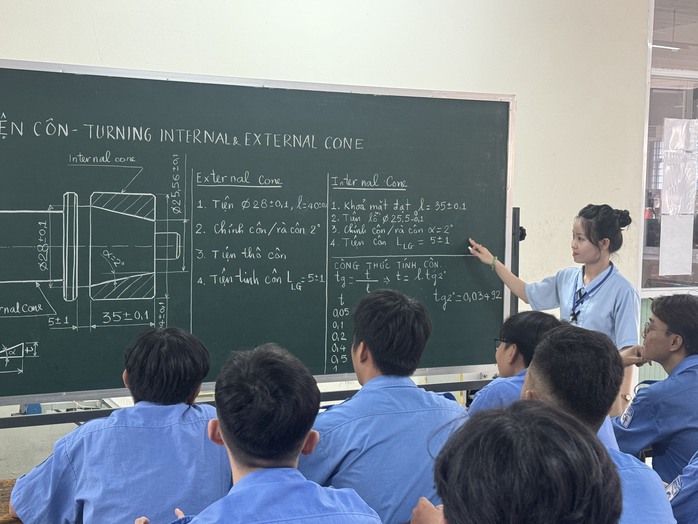 ỆN CÔN - TURNING INTERNAL & EXTERNAL CONE
Internal cone
Ø28±0,1
α=2°
Ø25,5±0,1
rnal Cone
5±1
35±0,1
α
External cone
1. Tiện Ø28±0,1, l=40
2. Chỉnh côn/rà côn 2°
3. Tiện thô côn
4. Tiện tinh côn L LG = 5±1
Internal Cone
1. Khoả mặt đạt l = 35±0.1
2. Tiện lỗ Ø25.5±0.1
3. Chỉnh côn/rà côn α=2°
4. Tiện côn L LG = 5±1
CÔNG THỨC TÍNH CÔN
tg = t/l ⇒ t = l.tg2°
tg2°=0,03492
t
0,05
0,1
0,2
0,4
0,5
1